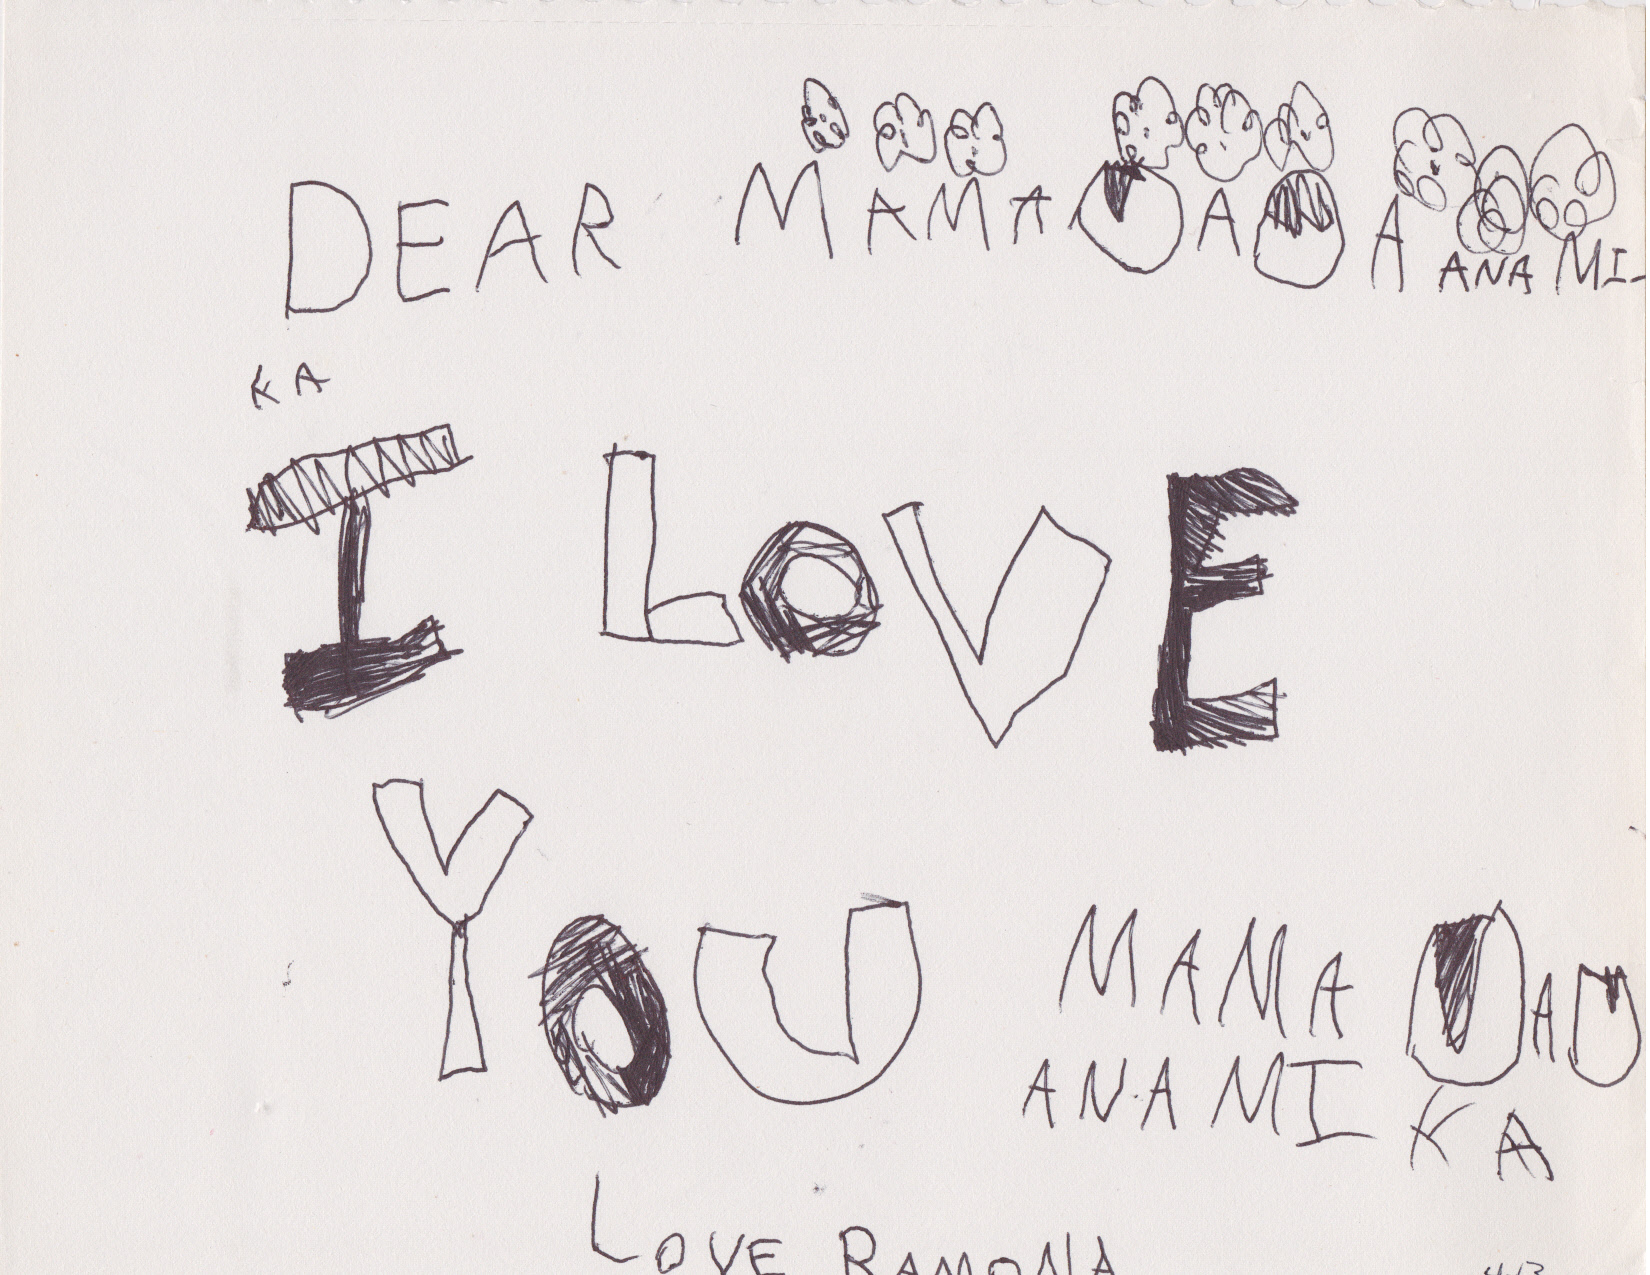 DEAR MAMA DADA ANAMI-
KA
I LOVE
YOU MAMA DAD
ANAMIKA
LOVE RAMONA